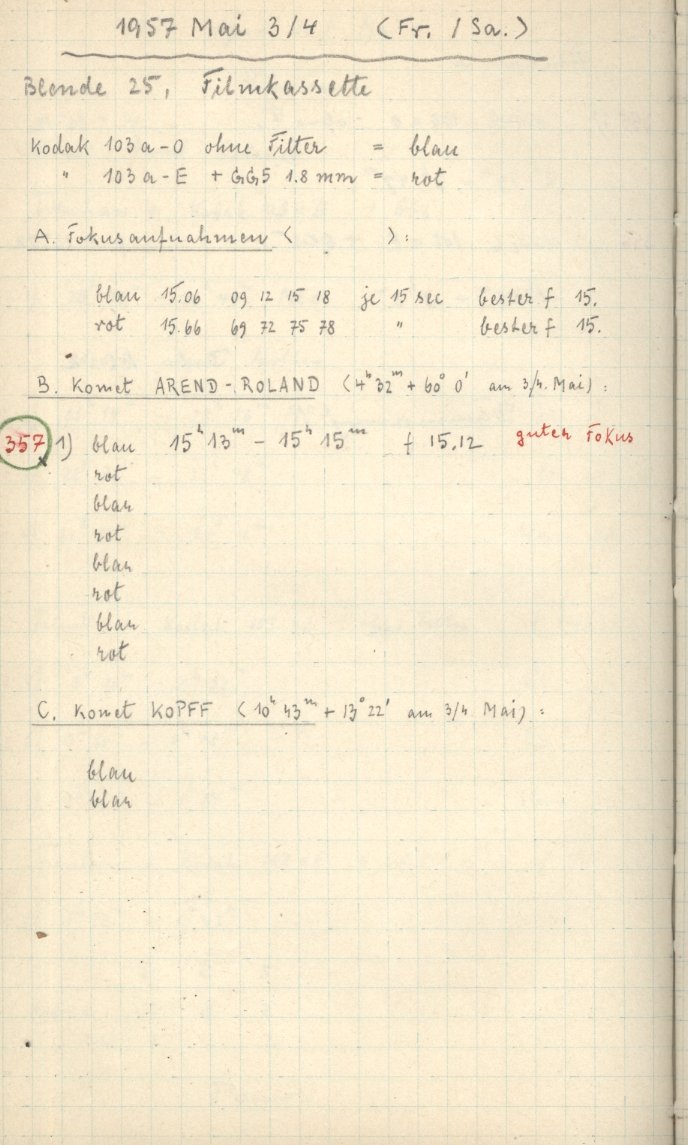 1957 Mai 3/4 (Fr. / Sa.)
Blende 25, Filmkassette
Kodak 103a-O ohne Filter = blau
" 103a-E + GG5 1.8 mm = rot
A. Fokusaufnahmen ( ):
blau 15.06 09 12 15 18 je 15 sec bester f 15.
rot 15.66 69 72 75 78 " bester f 15.
B. Komet AREND-ROLAND (4ʰ 32ᵐ + 60° 0' am 3/4. Mai):
357 1) blau 15ʰ 13ᵐ - 15ʰ 15ᵐ f 15.12 guter Fokus
rot
blau
rot
blau
rot
blau
rot
C. Komet KOPFF (10ʰ 43ᵐ + 13° 22' am 3/4 Mai):
blau
blau